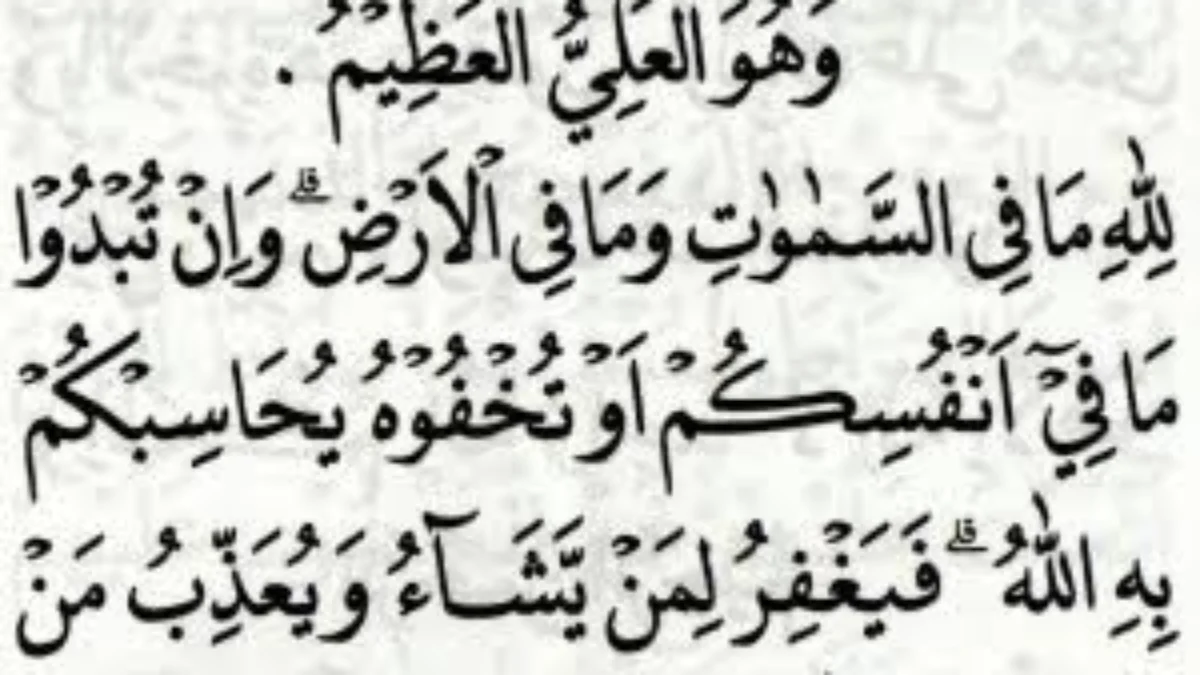 وَهُوَ الْعَلِيُّ الْعَظِيْمُ .
لِلّٰهِ مَا فِى السَّمٰوٰتِ وَمَا فِى الْاَرْضِ ۗ وَاِنْ تُبْدُوْا
مَا فِيْٓ اَنْفُسِكُمْ اَوْ تُخْفُوْهُ يُحَاسِبْكُمْ
بِهِ اللّٰهُ ۗ فَيَغْفِرُ لِمَنْ يَّشَاۤءُ وَيُعَذِّبُ مَنْ